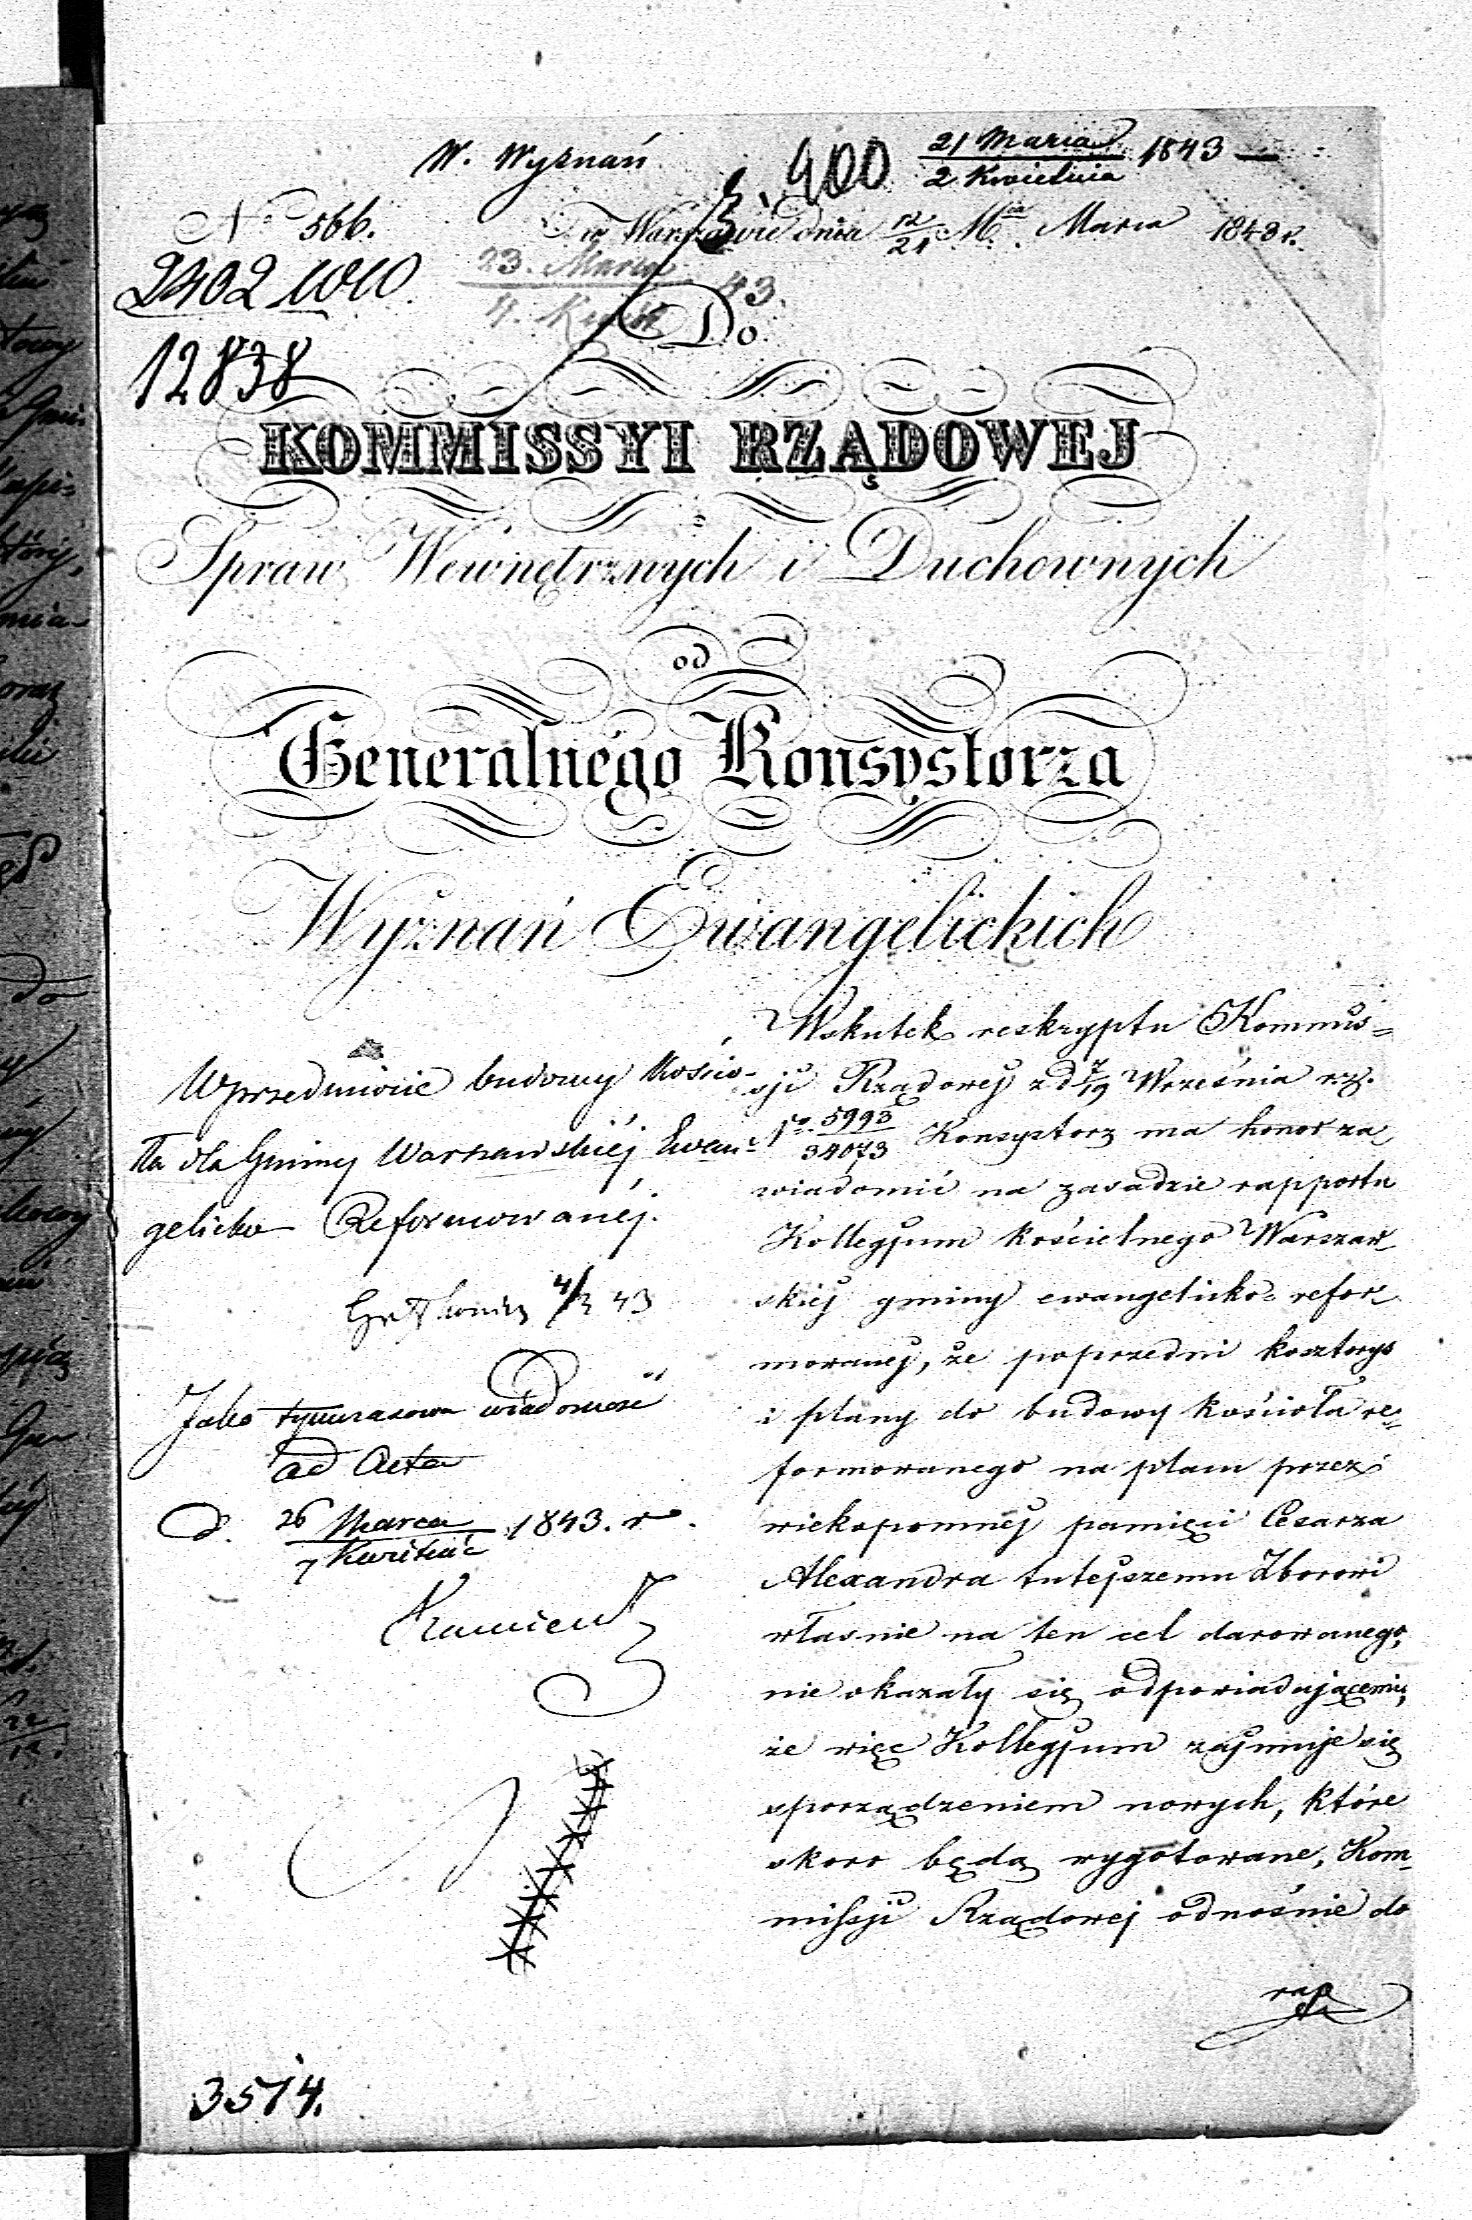 W. Wyznań
400
21 Marca 1843
2 Kwietnia
No 566.
w Warszawie dnia 12/21 Mca Marca 1843 r.
23. Marca 43.
4. Kwiet
2402
12838
Do
KOMMISSYI RZĄDOWEJ
Spraw Wewnętrznych i Duchownych
od
Generalnego Konsystorza
Wyznań Ewangelickich
W przedmiocie budowy Kościo-
ła dla Gminy Warszawskiéj Ewan-
gelicko Reformowanéj.
43
Jako tymczasowa wiadomość
ad Acta
d. 26 Marca 1843. r.
7 Kwietnia
Wskutek reskryptu Kommis=
sji Rządowej z d 7/19 Września r.z.
No 5993/34073 Konsystorz ma honor za
wiadomić na zasadzie rapportu
Kollegjum kościelnego Warszaw
skiej gminy ewangelicko= refor
mowanej, że poprzedni kosztorys
i plany do budowy kościoła re=
formowanego na placu przez
wiekopomnej pamięci Cesarza
Alexandra tutejszemu Zborowi
własnie na ten cel darowanego,
nie okazały się odpowiadającemi,
że więc Kollegjum zajmuje się
sporządzeniem nowych, które
skoro będą wygotowane, Kom-
missji Rządowej odnośnie do
rap
3574.